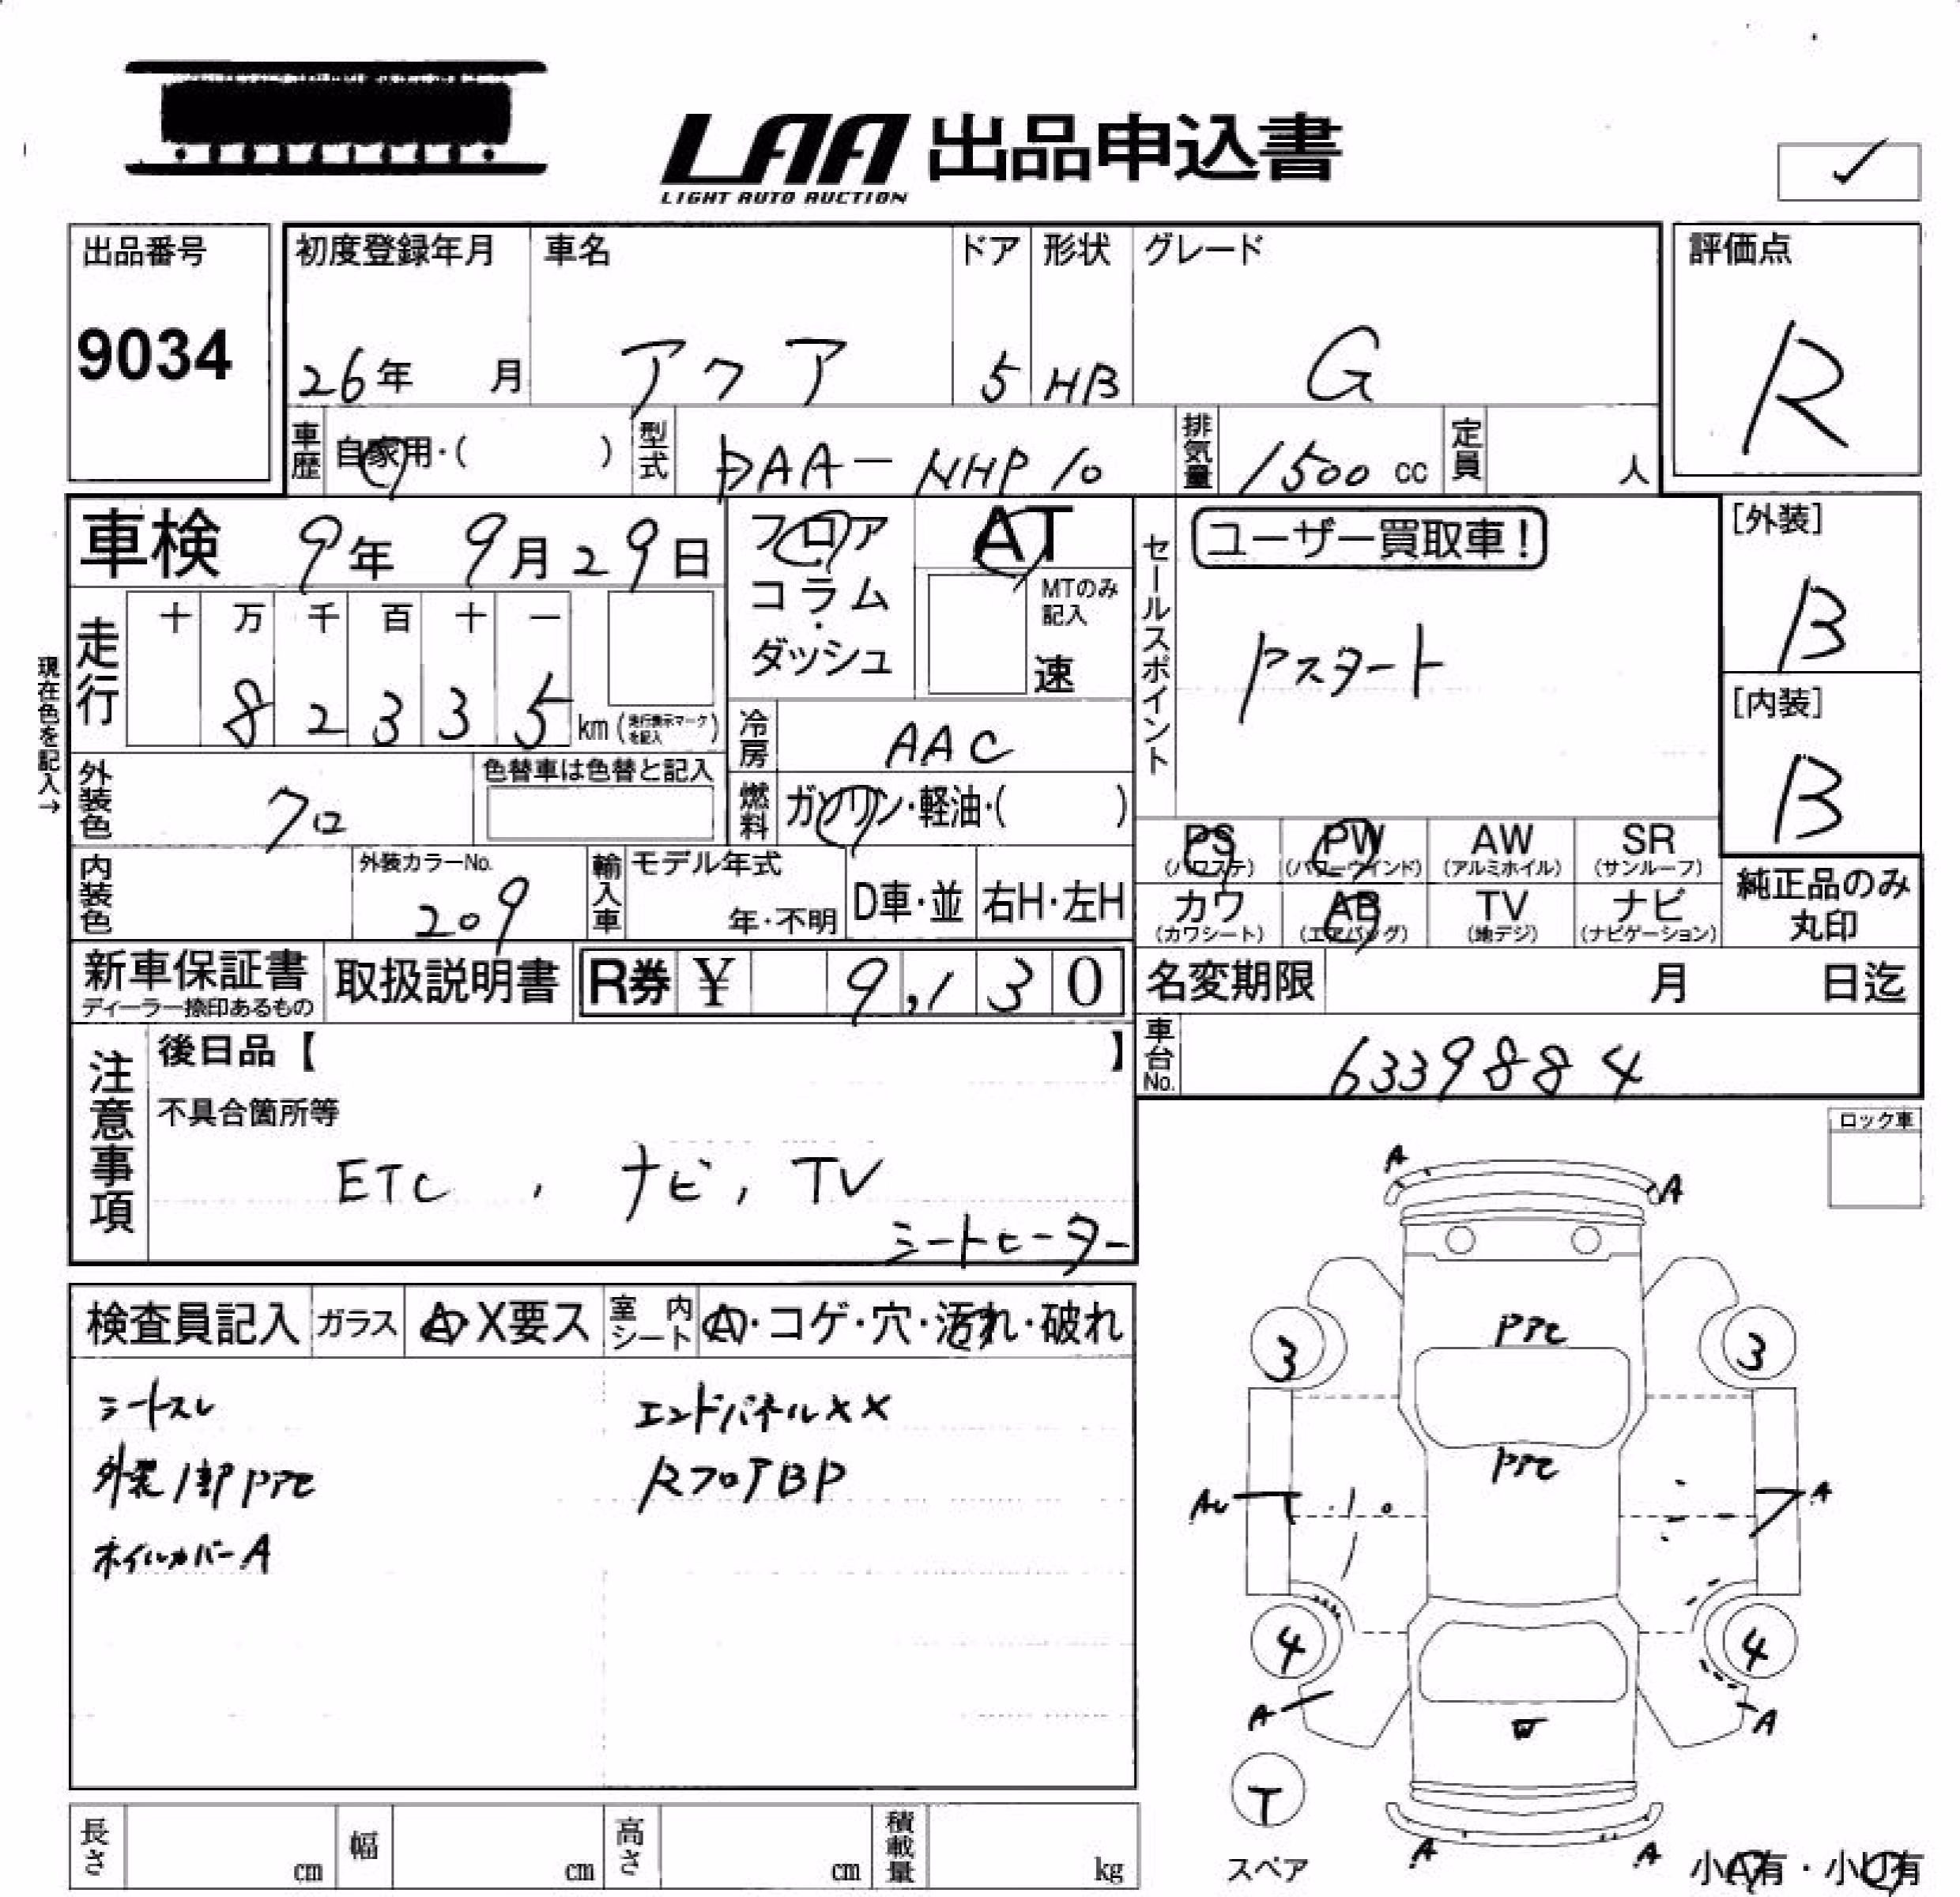 LAA 出品申込書
LIGHT AUTO AUCTION
✓
出品番号
9034
初度登録年月
26年 月
車名
アクア
ドア
5
形状
HB
グレード
G
評価点
R
車歴
自家用・( )
型式
DAA-NHP10
排気量
1500 cc
定員
人
車検 9年 9月29日
フロア
コラム
・
ダッシュ
AT
MTのみ
記入
速
セールスポイント
ユーザー買取車!
Pスタート
[外装]
B
[内装]
B
現在色を記入→
走行
十 万 千 百 十 一
8 2 3 3 5 km (走行表示マークを記入)
冷房
AAC
外装色
クロ
色替車は色替と記入
燃料
ガソリン・軽油・( )
PS
(パワステ)
PW
(パワーウインド)
AW
(アルミホイル)
SR
(サンルーフ)
カワ
(カワシート)
AB
(エアバッグ)
TV
(地デジ)
ナビ
(ナビゲーション)
純正品のみ
丸印
内装色
外装カラーNo.
209
輸入車
モデル年式
年・不明
D車・並
右H・左H
新車保証書
ディーラー捺印あるもの
取扱説明書
R券 ¥ 9,130
名変期限 月 日迄
車台No.
6339884
注意事項
後日品【 】
不具合箇所等
ETC , ナビ, TV
シートヒーター
ロック車
検査員記入
ガラス
A・X要ス
室内シート
A・コゲ・穴・汚れ・破れ
シートスレ
外装1部PPセ
ホイルカバーA
エンドパネルXX
RフロアBP
A
A
3
3
PPセ
PPセ
AU
A
4
4
A
A
W
T
スペア
A
A
小A有・小U有
長さ cm
幅 cm
高さ cm
積載量 kg